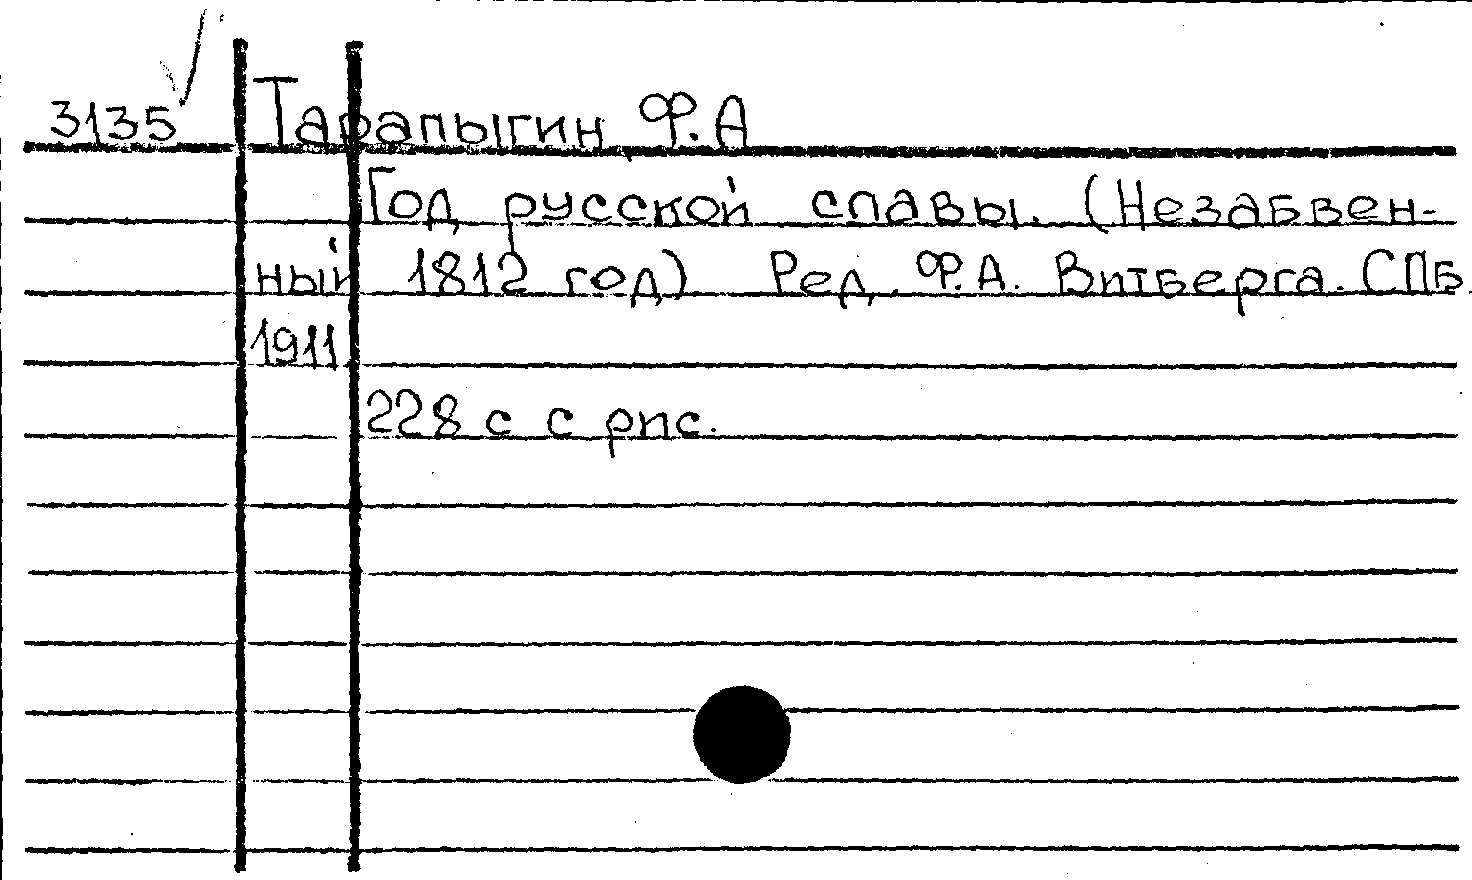 3135 Тарапыгин Ф.А
Год русской славы. (Незабвен-
ный 1812 год) Ред. Ф.А. Витберга. СПБ.
1911
228 с с рис.